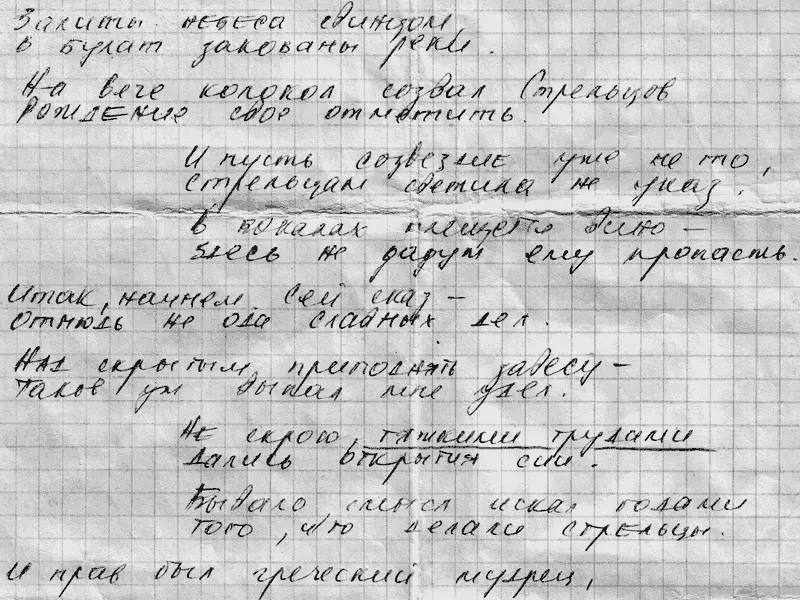 Залиты небеса свинцом
в булат закованы реки.
На вече колокол созвал Стрельцов
Рождение свое отметить.
И пусть созвездие уже не то,
Стрельцам светила не указ.
В бокалах плещется вино –
Здесь не дадут ему пропасть.
Итак, начнем сей сказ –
Отнюдь не ода славных дел.
Над скрытым приподнять завесу –
Таков уж выпал мне удел.
Не скрою, тяжкими трудами
дались открытия сии.
Бывало, смысл искал годами
того, что делали стрельцы.
И прав был греческий мудрец,